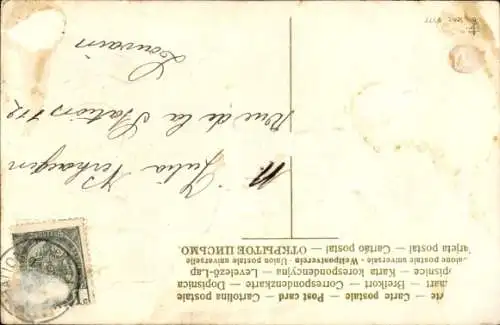 arte — Carte postale — Post card — Cartolina postale
kaart — Breifkort — Correspondenzkarte — Dopisnica
opisnice — Karta korespondencyjna — Levelező-Lap
Union postale universelle — Weltpostverein — Union postale universelle
Tarjeta postal — Cartão postal — ОТКРЫТОЕ ПИСЬМО
Julia Verhaegen
Rue de la Station 112
Louvain